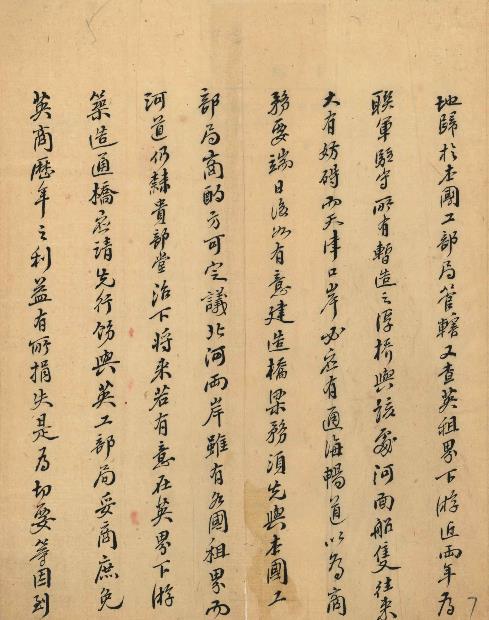 地歸於本國工部局管轄又查英租界下游近兩年爲
聯軍駐守所有暫造之浮橋與該處河面船隻往來
大有妨碍而天津口岸必應有通海暢道以爲商
務要端日後如有意建造橋梁務須先與本國工
部局商酌方可定議北河兩岸雖有各國租界而
河道仍隸貴部堂治下將來若有意在英界下游
築造通橋應請先行飭與英工部局妥商庶免
英商歷年之利益有所損失是爲切要等因到
7